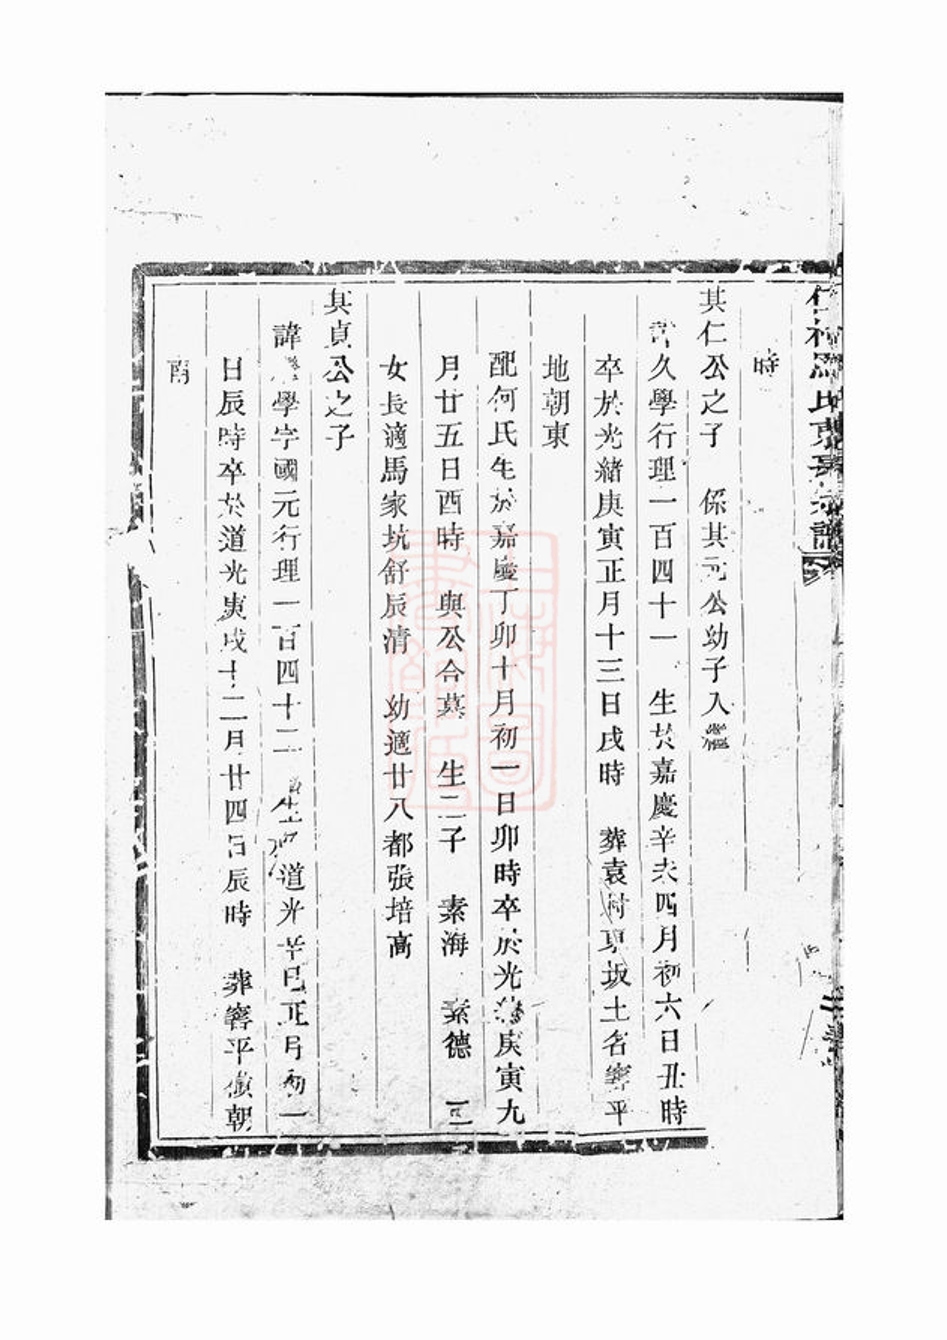 時
其仁公之子　係其元公幼子入繼
久學行理一百四十一　生於嘉慶辛未四月初六日丑時
卒於光緒庚寅正月十三日戌時　葬袁村東坂土名窰平
地朝東
配何氏生於嘉慶丁卯十月初一日卯時卒於光緒庚寅九
月廿五日酉時　與公合墓　生二子　素海　素德　二
女長適馬家坑舒辰清　幼適廿八都張培高
其貞公之子
諱學字國元行理一百四十二　生於道光辛巳正月初一
日辰時卒於道光庚戌十二月廿四日辰時　葬窰平嶺朝
南